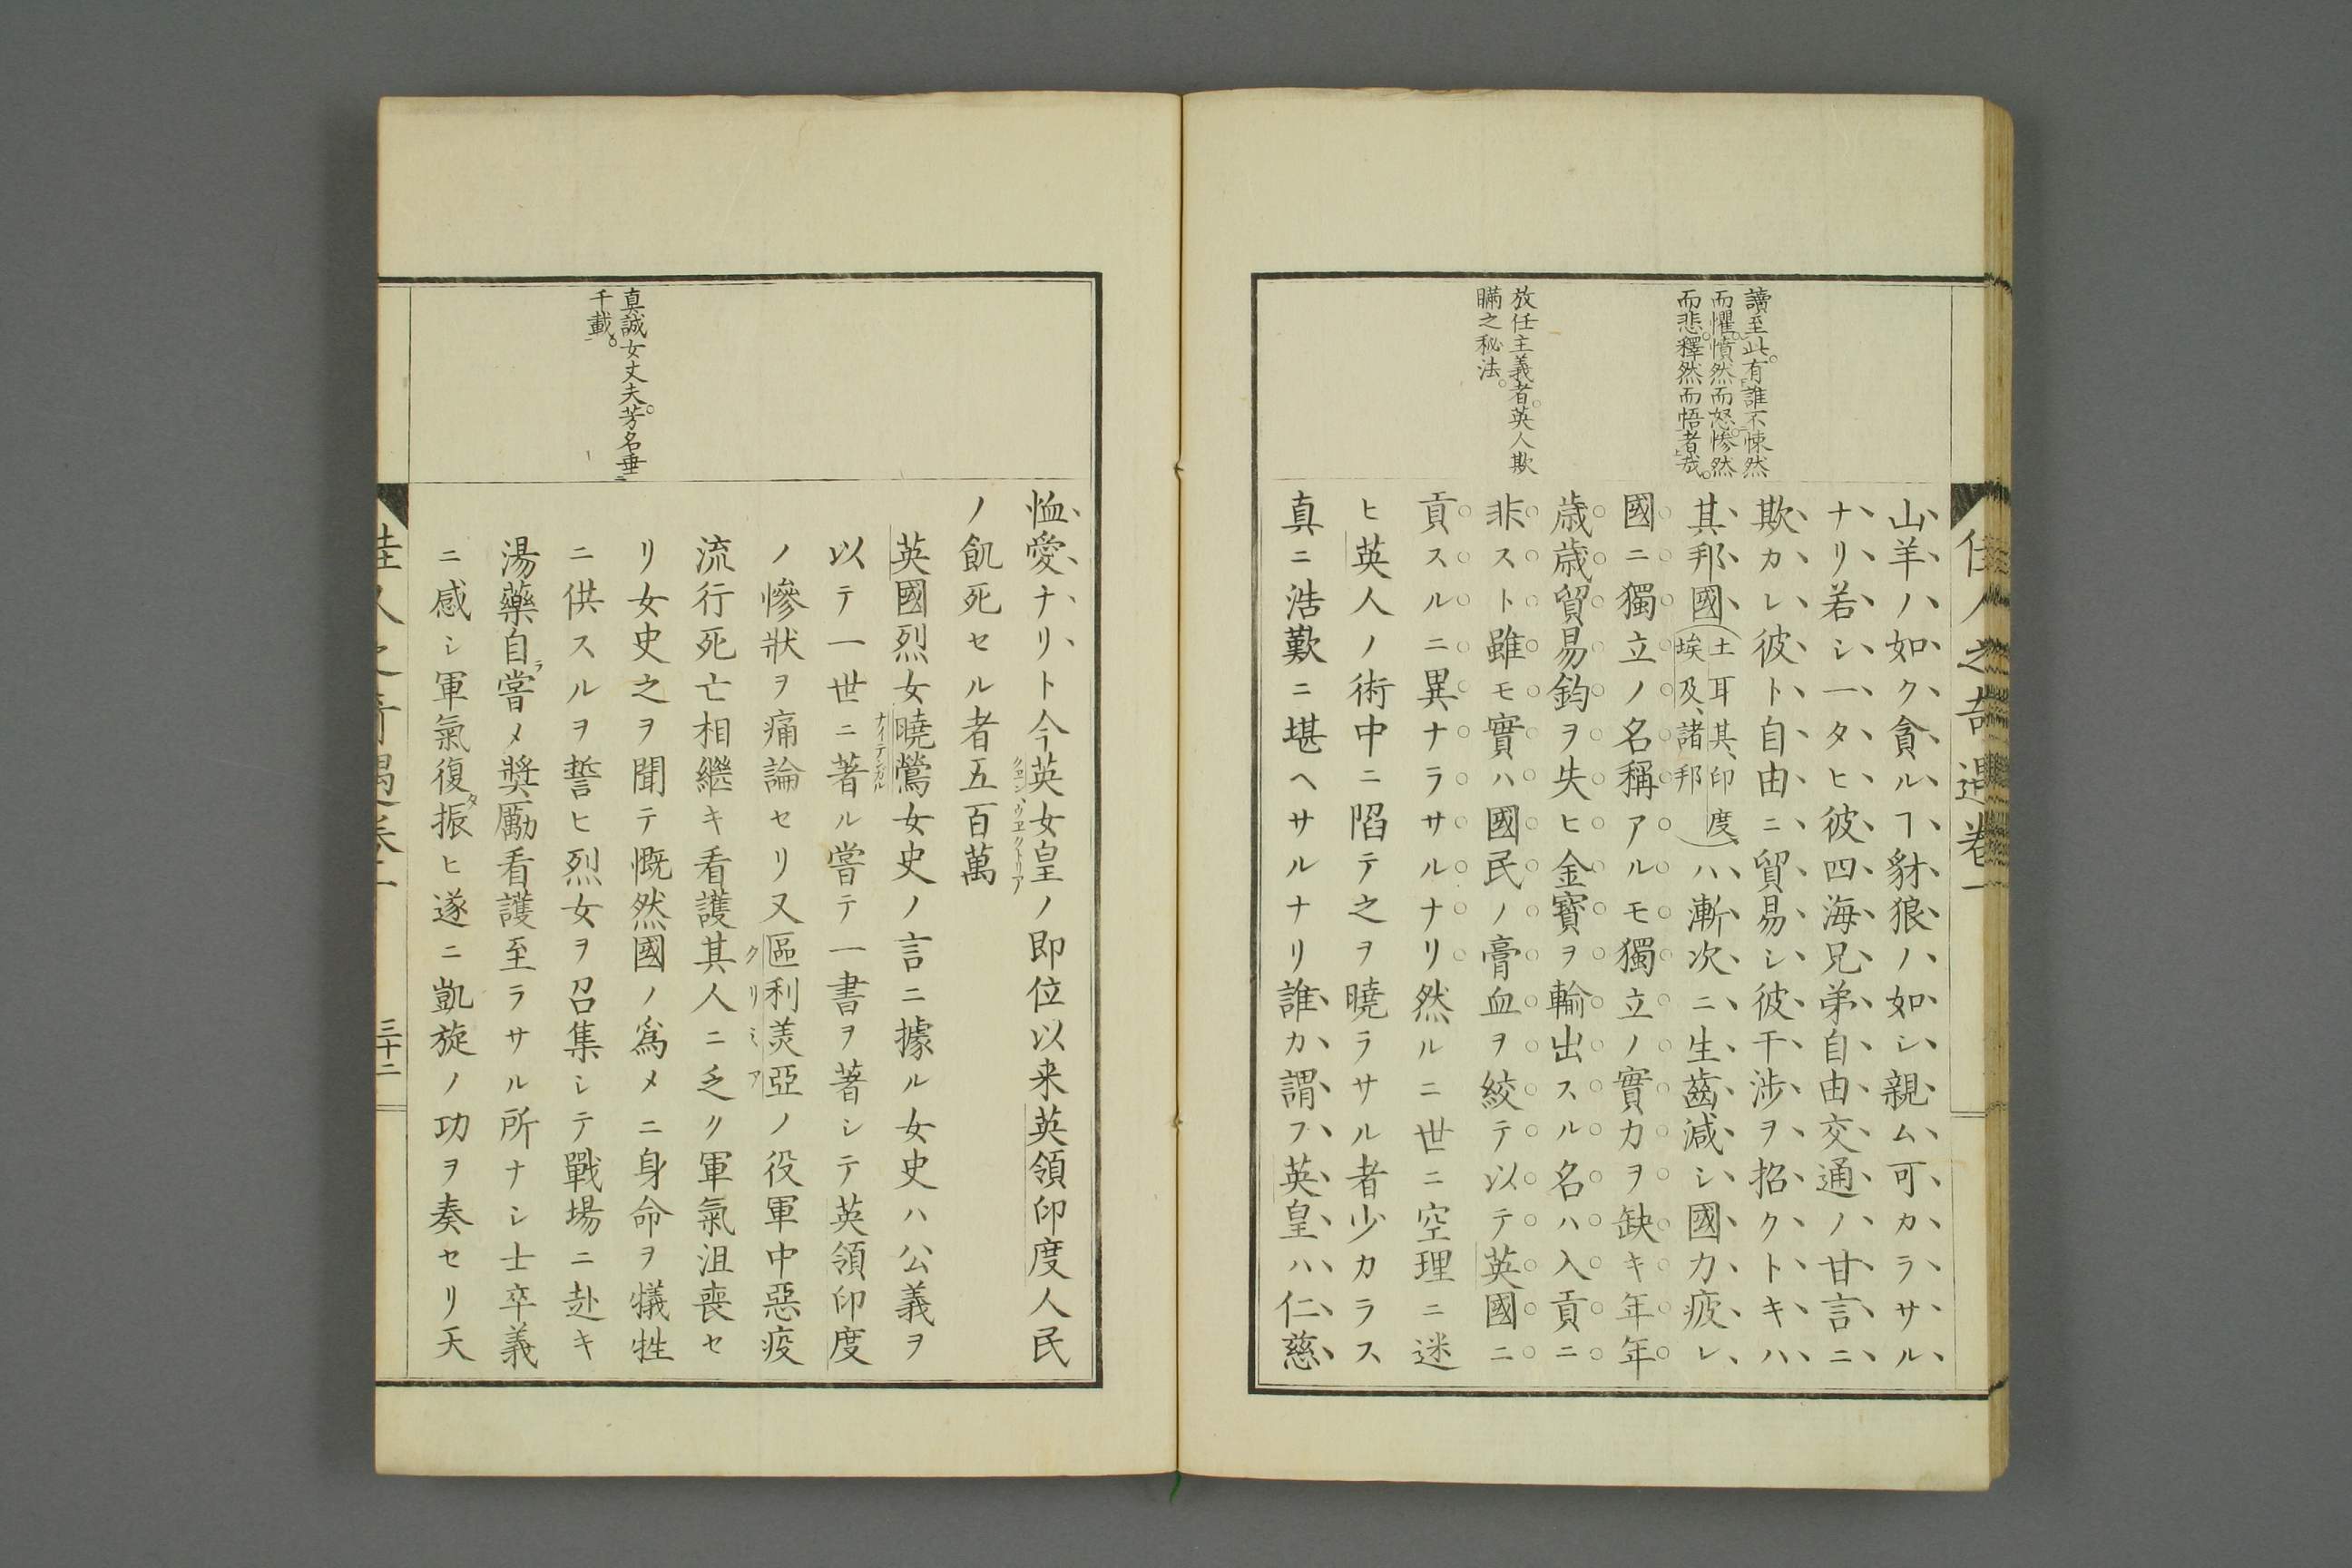 佳人之奇遇卷一
讀至此。有誰不悚然
而懼。憤然而怒。慘然
而悲。釋然而悟者哉。
放任主義者。英人欺
瞞之秘法。
山羊ノ如ク貪ルヿ豺狼ノ如シ親ム可カラサル
ナリ若シ一タヒ彼四海兄弟自由交通ノ甘言ニ
欺カレ彼ト自由ニ貿易シ彼干渉ヲ招クトキハ
其邦國(土耳其、印度、埃及、諸邦)ハ漸次ニ生齒減シ國力疲レ
國ニ獨立ノ名稱アルモ獨立ノ實力ヲ缺キ年年
歳歳貿易鈞ヲ失ヒ金寶ヲ輸出スル名ハ入貢ニ
非スト雖モ實ハ國民ノ膏血ヲ絞テ以テ英國ニ
貢スルニ異ナラサルナリ然ルニ世ニ空理ニ迷
ヒ英人ノ術中ニ陷テ之ヲ曉ラサル者少カラス
真ニ浩歎ニ堪ヘサルナリ誰カ謂フ英皇ハ仁慈
真誠女丈夫。芳名垂ニ
千載一。
恤愛ナリト今英女皇ノ即位以来英領印度人民
クヱン、ヴヱクトリア
ノ飢死セル者五百萬
英國烈女曉鶯女史ノ言ニ據ル女史ハ公義ヲ
ナイテンガル
以テ一世ニ著ル嘗テ一書ヲ著シテ英領印度
ノ慘狀ヲ痛論セリ又區利美亞ノ役軍中惡疫
クリミア
流行死亡相繼キ看護其人ニ乏ク軍氣沮喪セ
リ女史之ヲ聞テ慨然國ノ爲メニ身命ヲ犠牲
ニ供スルヲ誓ヒ烈女ヲ召集シテ戰場ニ赴キ
湯藥自ラ嘗メ奬勵看護至ラサル所ナシ士卒義
ニ感シ軍氣復タ振ヒ遂ニ凱旋ノ功ヲ奏セリ天
佳人之奇遇卷一
三十二